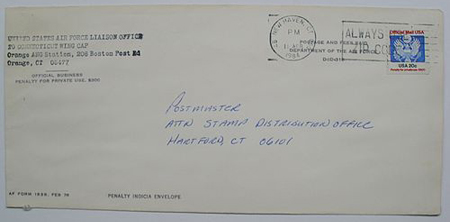 UNITED STATES AIR FORCE LIAISON OFFICE
TO CONNECTICUT WING CAP
Orange ANG Station, 208 Boston Post Rd
Orange, CT 06477
OFFICIAL BUSINESS
PENALTY FOR PRIVATE USE, $300
NEW HAVEN, CT
PM
1984
ALWAYS
POSTAGE AND FEES PAID
DEPARTMENT OF THE AIR FORCE
Official Mail USA
USA 20c
POSTMASTER
ATTN STAMP DISTRIBUTION OFFICE
HARTFORD, CT 06101
PENALTY INDICIA ENVELOPE